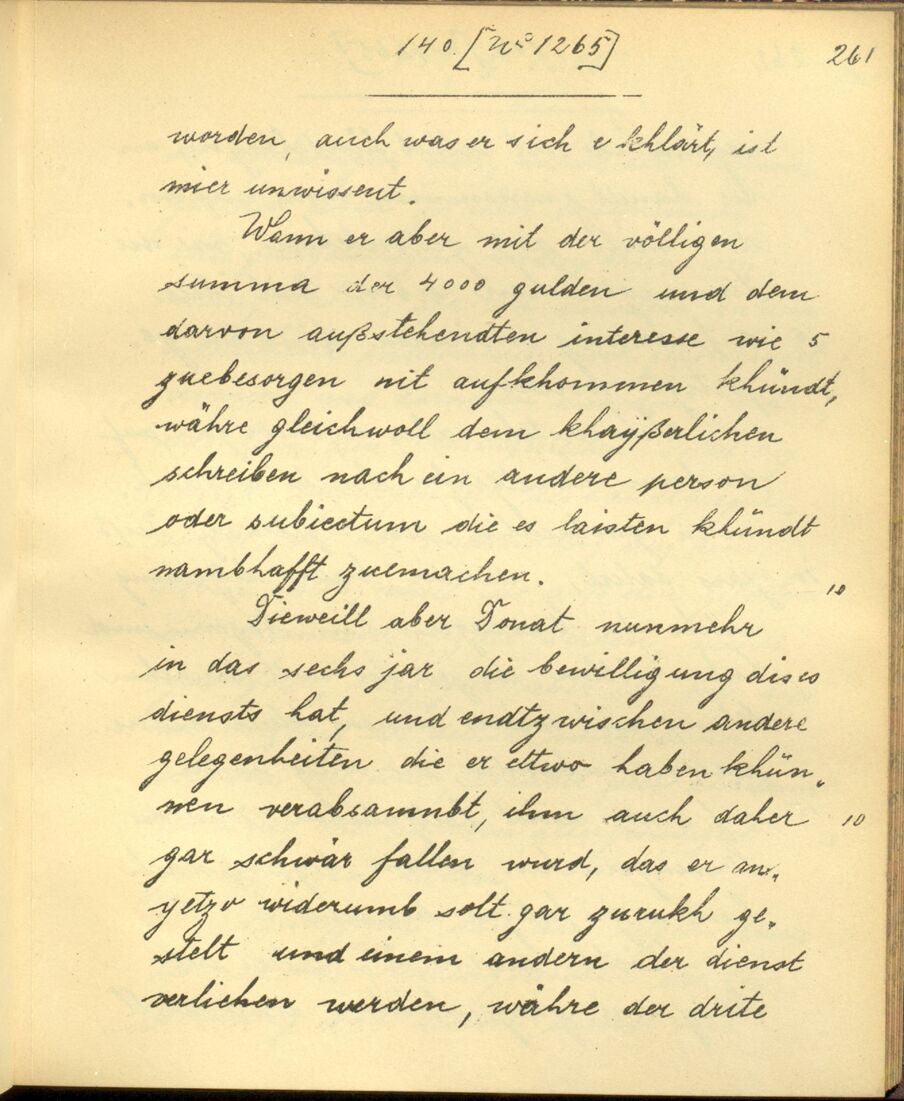 140. [No 1265]
261
worden, auch was er sich erkhlärt, ist
mier unwissent.
Wann er aber mit der völligen
summa der 4000 gulden und dem
darvon außstehendten interesse wie 5
zuebesorgen nit aufkhommen khündt,
währe gleichwoll dem khayßerlichen
schreiben nach ein andere person
oder subiectum die es laisten khündt
nambhafft zuemachen.
10
Dieweill aber Donat nunmehr
in das sechs jar die bewilligung dises
diensts hat, und endtzwischen andere
gelegenheiten die er ettwo haben khün„
nen verabsaumbt, ihm auch daher 10
gar schwär fallen wurd, das er an„
yetzo widerumb solt gar zurukh ge„
stelt und einem andern der dienst
verlichen werden, währe der drite